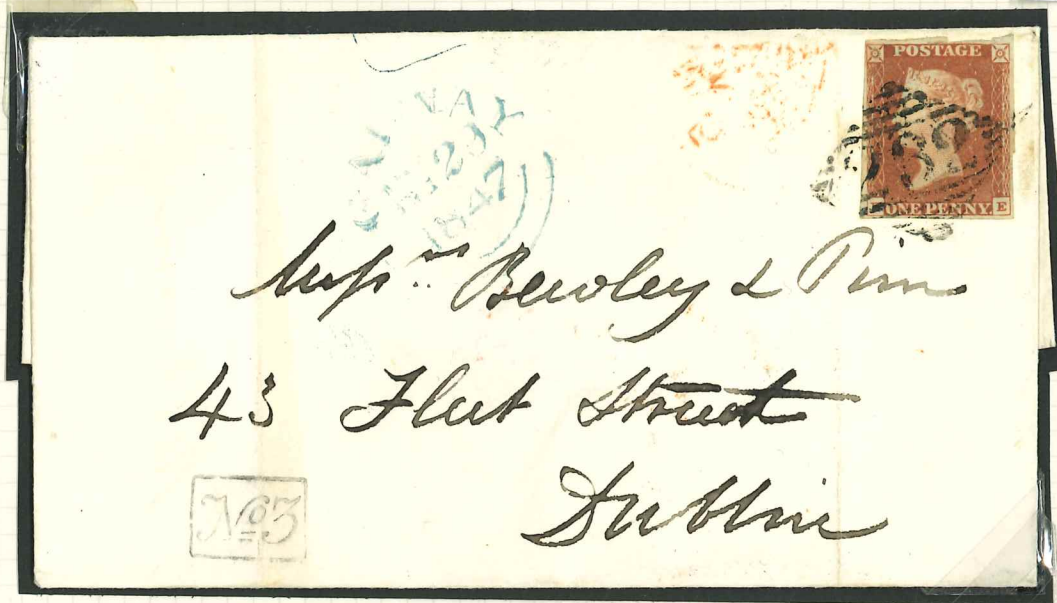 POSTAGE
ONE PENNY
E
GALWAY
29
1847
Messrs. Bewley & Pim
43 Fleet Street
Dublin
No 3